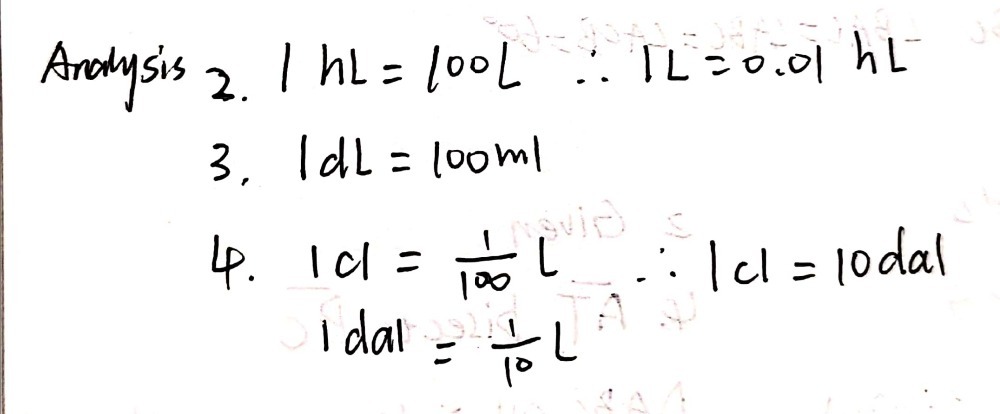 Analysis 2. 1 hL = 100L ∴ 1L = 0.01 hL
3. 1dL = 100ml
4. 1cl = 1/100 L ∴ 1cl = 10dal
1dal = 1/10 L